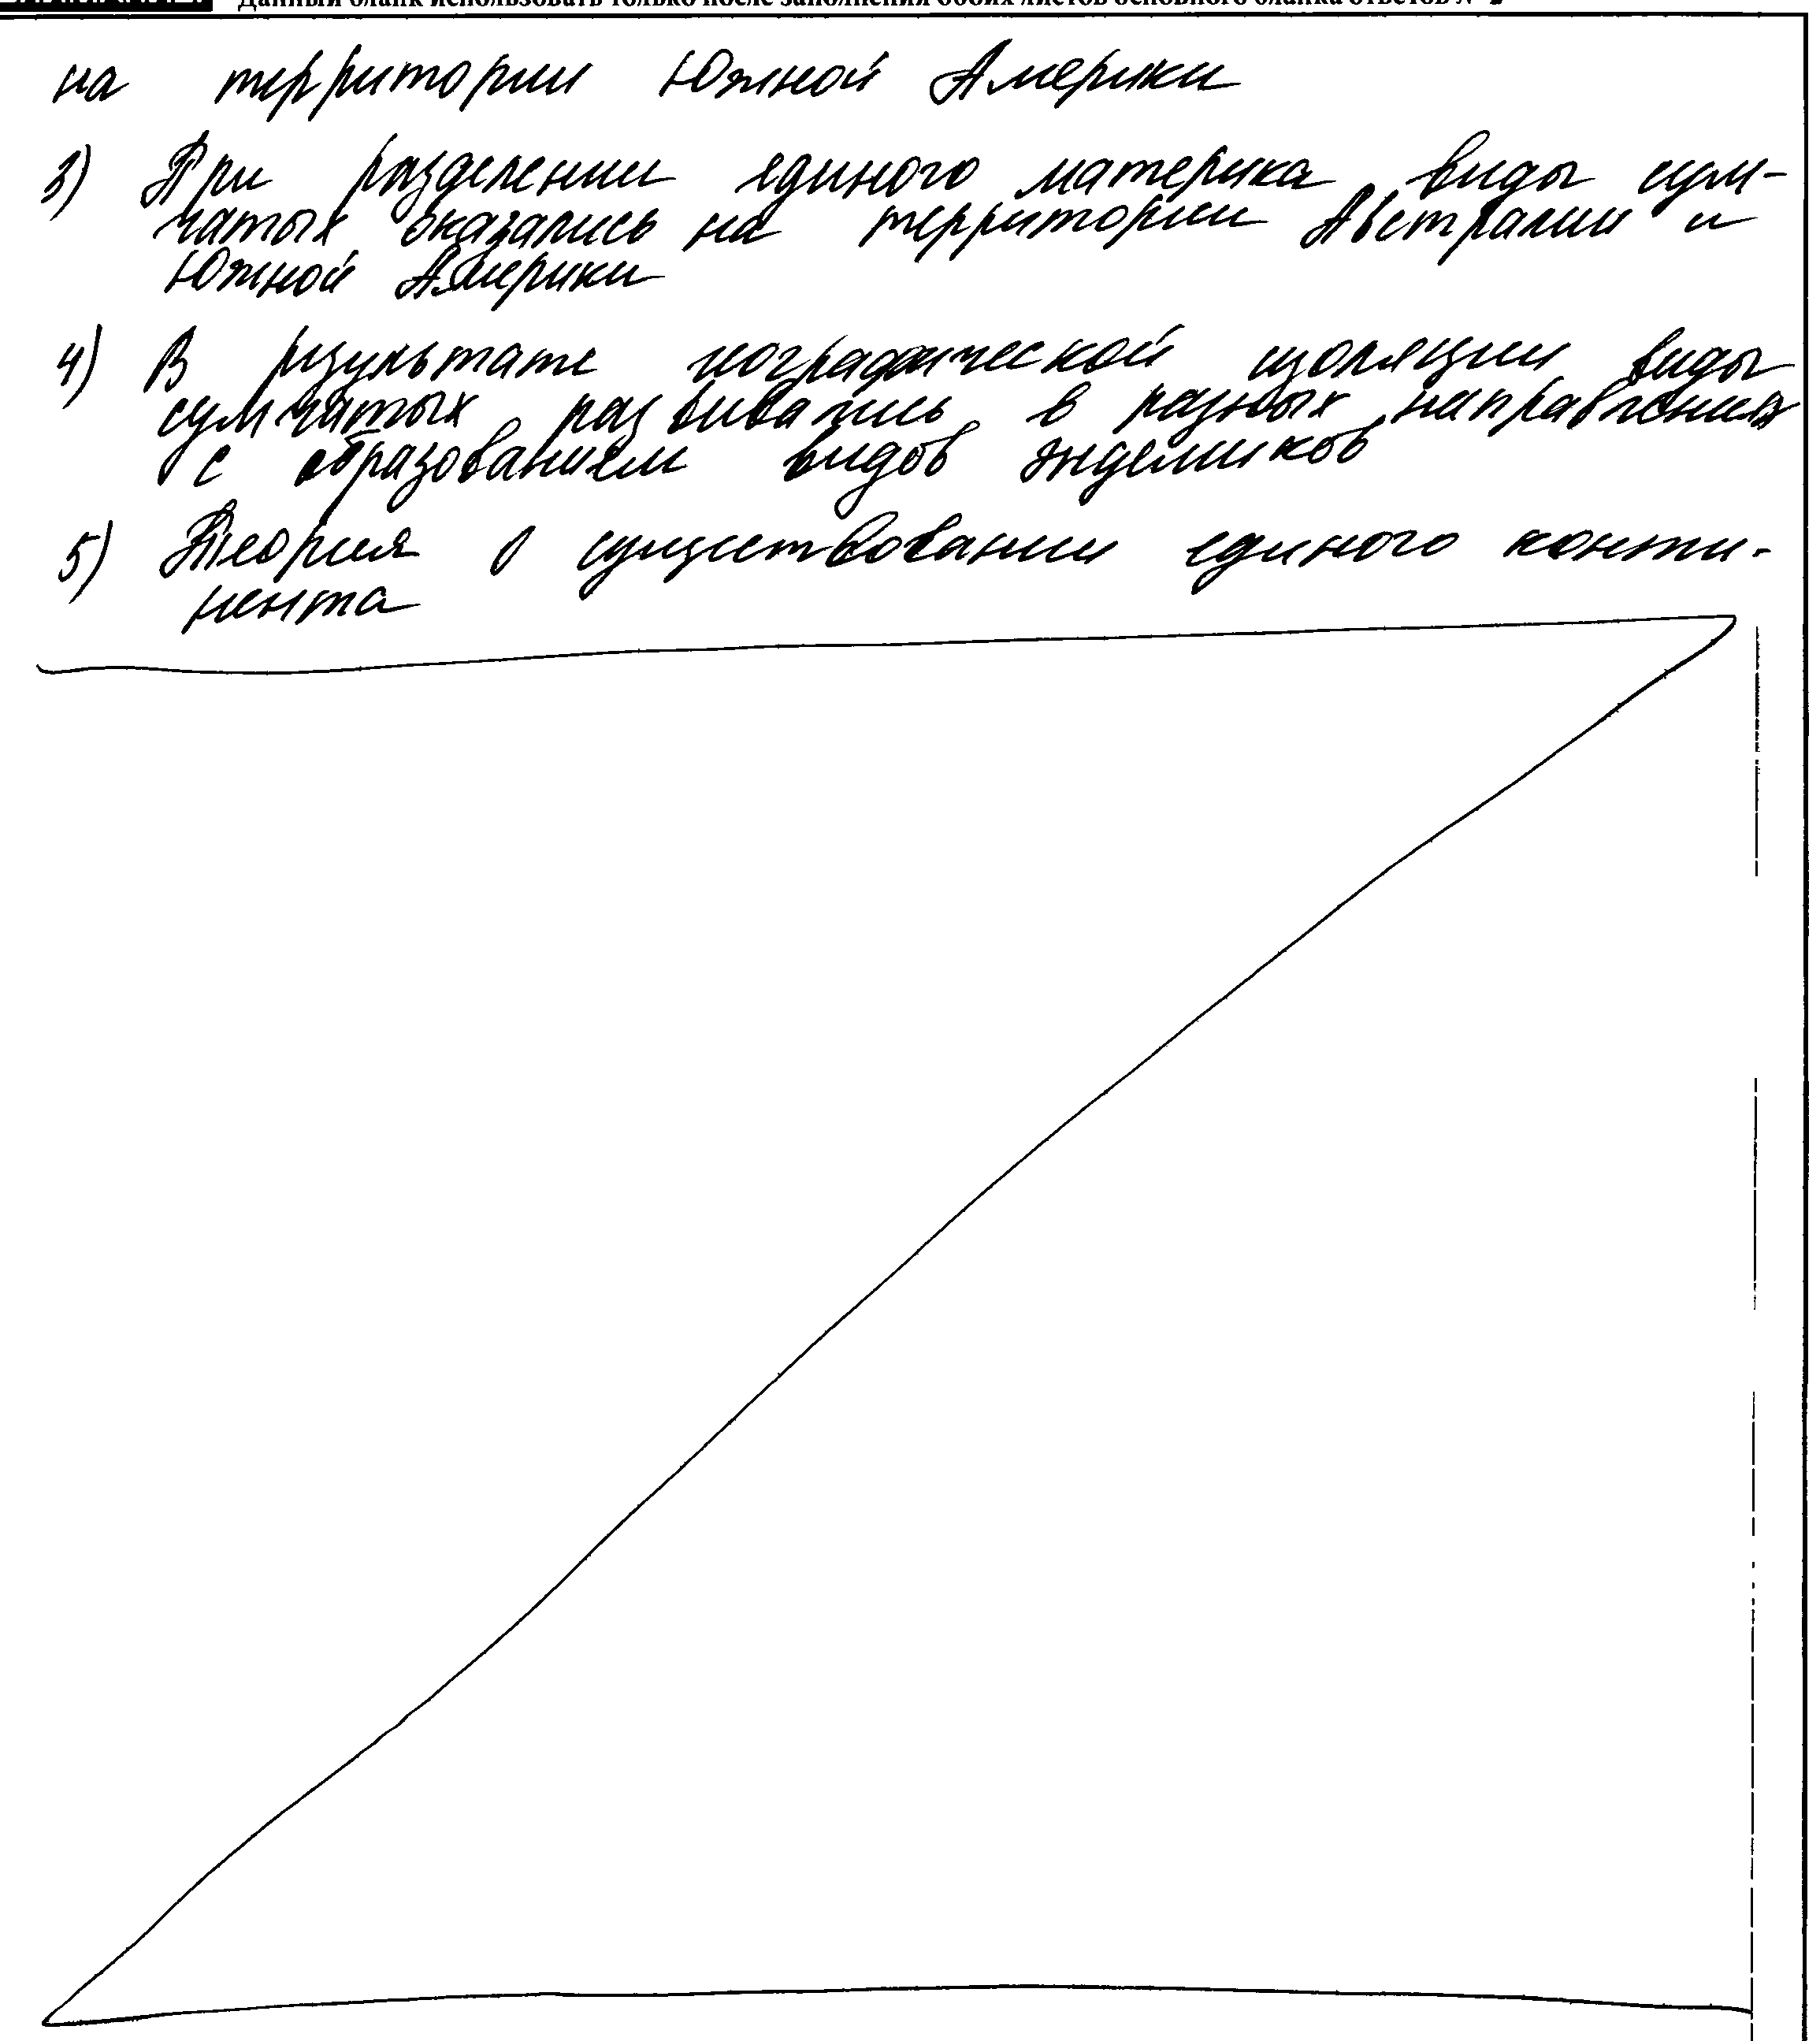 Данный бланк использовать только после заполнения обоих листов основного бланка ответов № 2
на территории Южной Америки
3) При разделении единого материка виды сум-
чатых оказались на территории Австралии и
Южной Америки
4) В результате географической изоляции виды
сумчатых развивались в разных направлениях
с образованием видов эндемиков
5) Теория о существовании единого конти-
нента